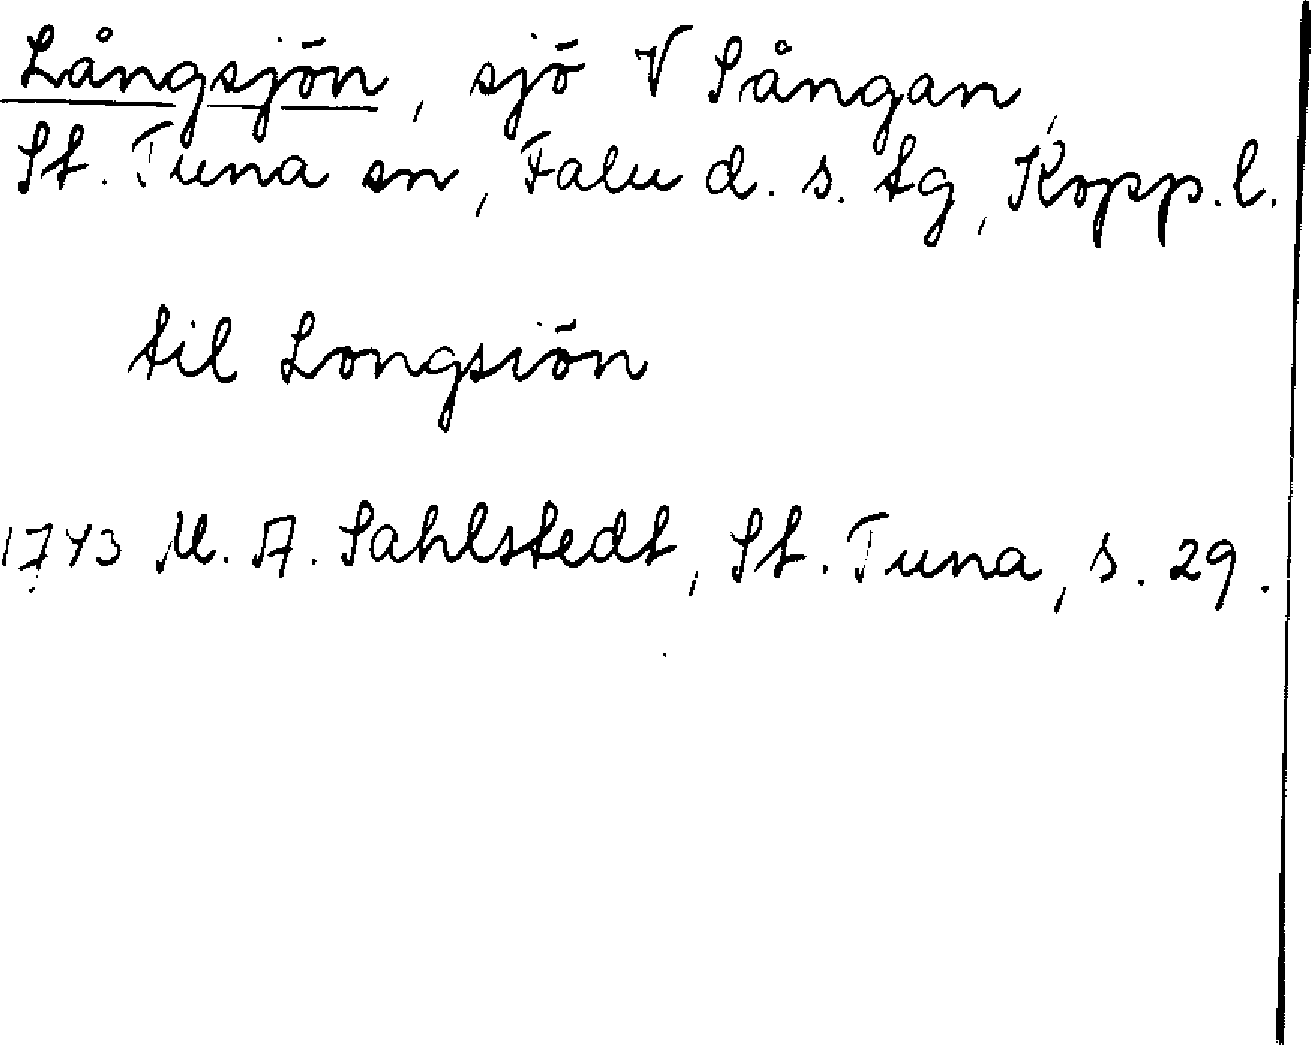 Långsjön, sjö V Sångan,
St. Tuna sn, Falu d. s. tg, Kopp. l.
til Longsiön
1743 M. A. Sahlstedt, St. Tuna, s. 29.